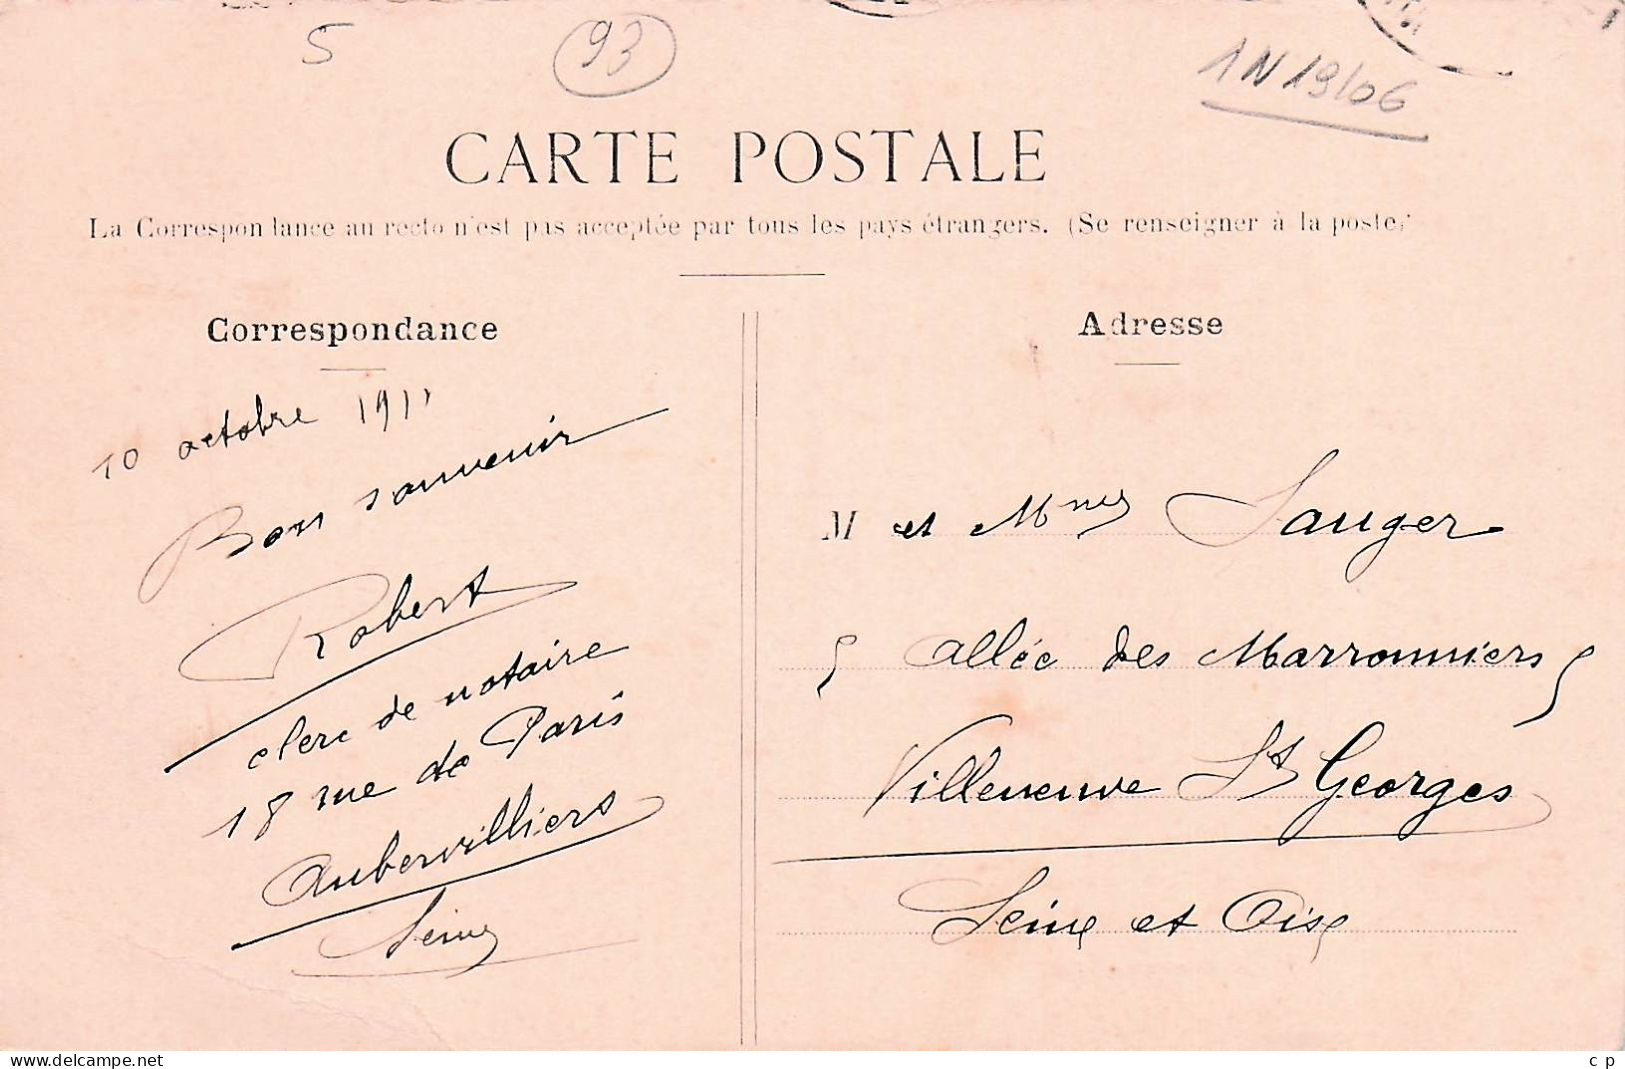 5
93
1N19/06
CARTE POSTALE
La Correspondance au recto n'est pas acceptée par tous les pays étrangers. (Se renseigner à la poste)
Correspondance
10 octobre 1911
Bon souvenir
Robert
clerc de notaire
18 rue de Paris
Aubervilliers
Seine
Adresse
M et Mme Sauger
5 allée des Marronniers 5
Villeneuve St Georges
Seine et Oise
www.delcampe.net
c p